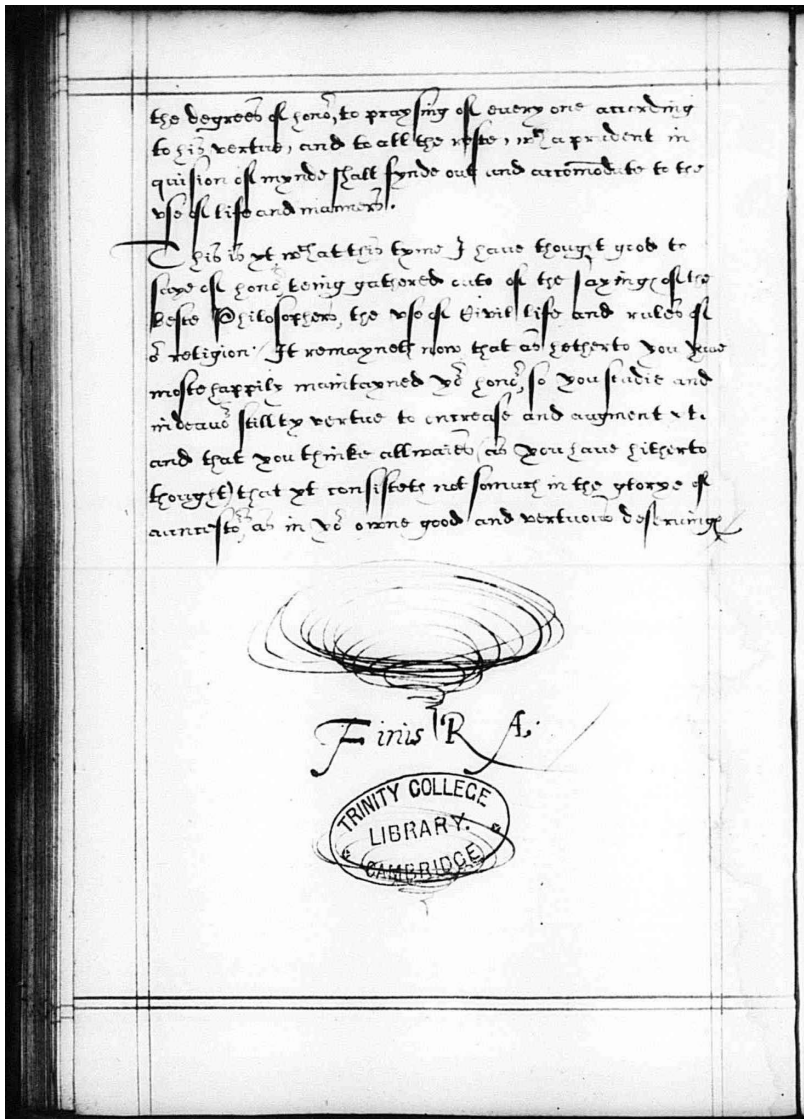 the degrees of honor, to praysing of every one according
to his vertue, and to all the reste, wch a prudent in
quision of mynde shall fynde out and accomodate to the
vse of life and manners.
This is yt wch at this tyme I have thought good to
saye of honor, being gathered outo of the sayinges of the
beste Philosophers, the vse of Civil life and rules of
or religion. It remayneth now that as hetherto you have
moste happily maintayned yor honor, so you studie and
indeauor still by vertue to increase and augment yt.
and that you thinke allwaies (as you have hitherto
thought) that yt consisteth not somuch in the glorye of
auncestors, as in yor owne good and vertuous deseruinges
Finis R A.
TRINITY COLLEGE
LIBRARY.
CAMBRIDGE